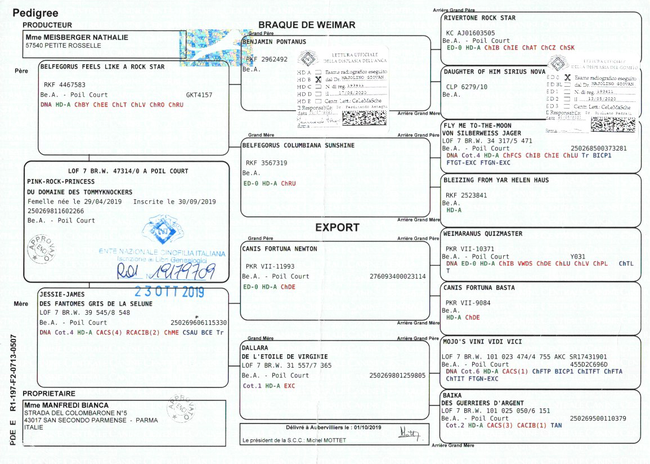 Pedigree
PRODUCTEUR
Mme MEISBERGER NATHALIE
57540 PETITE ROSSELLE
BRAQUE DE WEIMAR
Père
BELFEGORUS FEELS LIKE A ROCK STAR
RKF 4467583
Be.A. - Poil Court GKT4157
DNA HD-A ChBY ChEE ChLT ChLV ChRO ChRU
LOF 7 BR.W. 47314/0 A POIL COURT
PINK-ROCK-PRINCESS
DU DOMAINE DES TOMMYKNOCKERS
Femelle née le 29/04/2019 Inscrite le 30/09/2019
250269811602266
Be.A. - Poil Court
ENTE NAZIONALE CINOFILIA ITALIANA
ROI 19179709
23 OTT 2019
Mère
JESSIE-JAMES
DES FANTOMES GRIS DE LA SELUNE
LOF 7 BR.W. 39 545/8 548
Be.A. - Poil Court 250269606115330
DNA Cot.4 HD-A CACS(4) RCACIB(2) ChME CSAU BCE Tr
PROPRIETAIRE
Mme MANFREDI BIANCA
STRADA DEL COLOMBARONE N°5
43017 SAN SECONDO PARMENSE - PARMA
ITALIE
PDE E R1-197-F2-0713-0507
Grand Père
BENJAMIN PONTANUS
RKF 2962492
Be.A.
LETTURA UFFICIALE
Grand Mère
BELFEGORUS COLUMBIANA SUNSHINE
RKF 3567319
Be.A.
ED-0 HD-A ChRU
EXPORT
Grand Père
CANIS FORTUNA NEWTON
PKR VII-11993
Be.A. 276093400023114
ED-0 HD-A ChDE
Grand Mère
DALLARA
DE L'ETOILE DE VIRGINIE
LOF 7 BR.W. 31 557/7 365
Be.A. - Poil Court 250269801259805
Cot.1 HD-A EXC
Délivré à Aubervilliers le : 01/10/2019
Le président de la S.C.C : Michel MOTTET
Arrière Grand Père
RIVERTONE ROCK STAR
KC AJ01603505
Be.A. - Poil Court
ED-0 HD-A ChIB ChIE ChAT ChCZ ChSK
Arrière Grand Mère
DAUGHTER OF HIM SIRIUS NOVA
CLP 6279/10
Be.A.
Arrière Grand Père
FLY ME TO-THE-MOON
VON SILBERWEISS JAGER
LOF 7 BR.W. 34 317/5 471
Be.A. - Poil Court 250268500373281
DNA Cot.4 HD-A ChFCS ChIB ChIE ChLU Tr BICP1
FTGT-EXC FTGN-EXC
Arrière Grand Mère
BLEIZING FROM YAR HELEN HAUS
RKF 2523841
Be.A.
HD-A
Arrière Grand Père
WEIMARANUS QUIZMASTER
PKR VII-10371
Be.A. - Poil Court Y031
DNA ED-0 HD-A ChIB VWDS ChDE ChLU ChLV ChPL ChTL
T
Arrière Grand Mère
CANIS FORTUNA BASTA
PKR VII-9084
Be.A. - Poil Court
HD-A ChDE
Arrière Grand Père
MOJO'S VINI VIDI VICI
LOF 7 BR.W. 101 023 474/4 755 AKC SR17431901
Be.A. - Poil Court 455D2C696D
DNA Cot.6 HD-A CACS(1) ChFTP BICP1 ChITFT ChFTA
ChTIT FTGN-EXC
BAIKA
DES GUERRIERS D'ARGENT
LOF 7 BR.W. 101 025 050/6 151
Be.A. - Poil Court 250269500110379
Cot.2 HD-A CACS(3) CACIB(1) TAN
Arrière Grand Mère